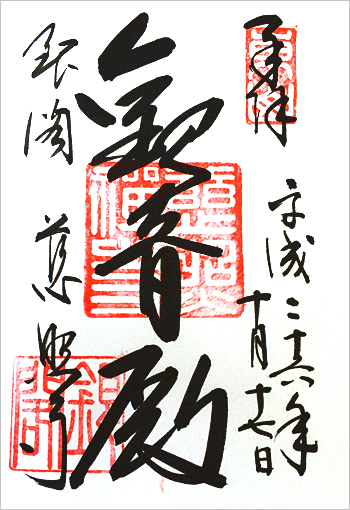 奉拝
平成二十六年
十月十七日
観音殿
銀閣 慈照寺